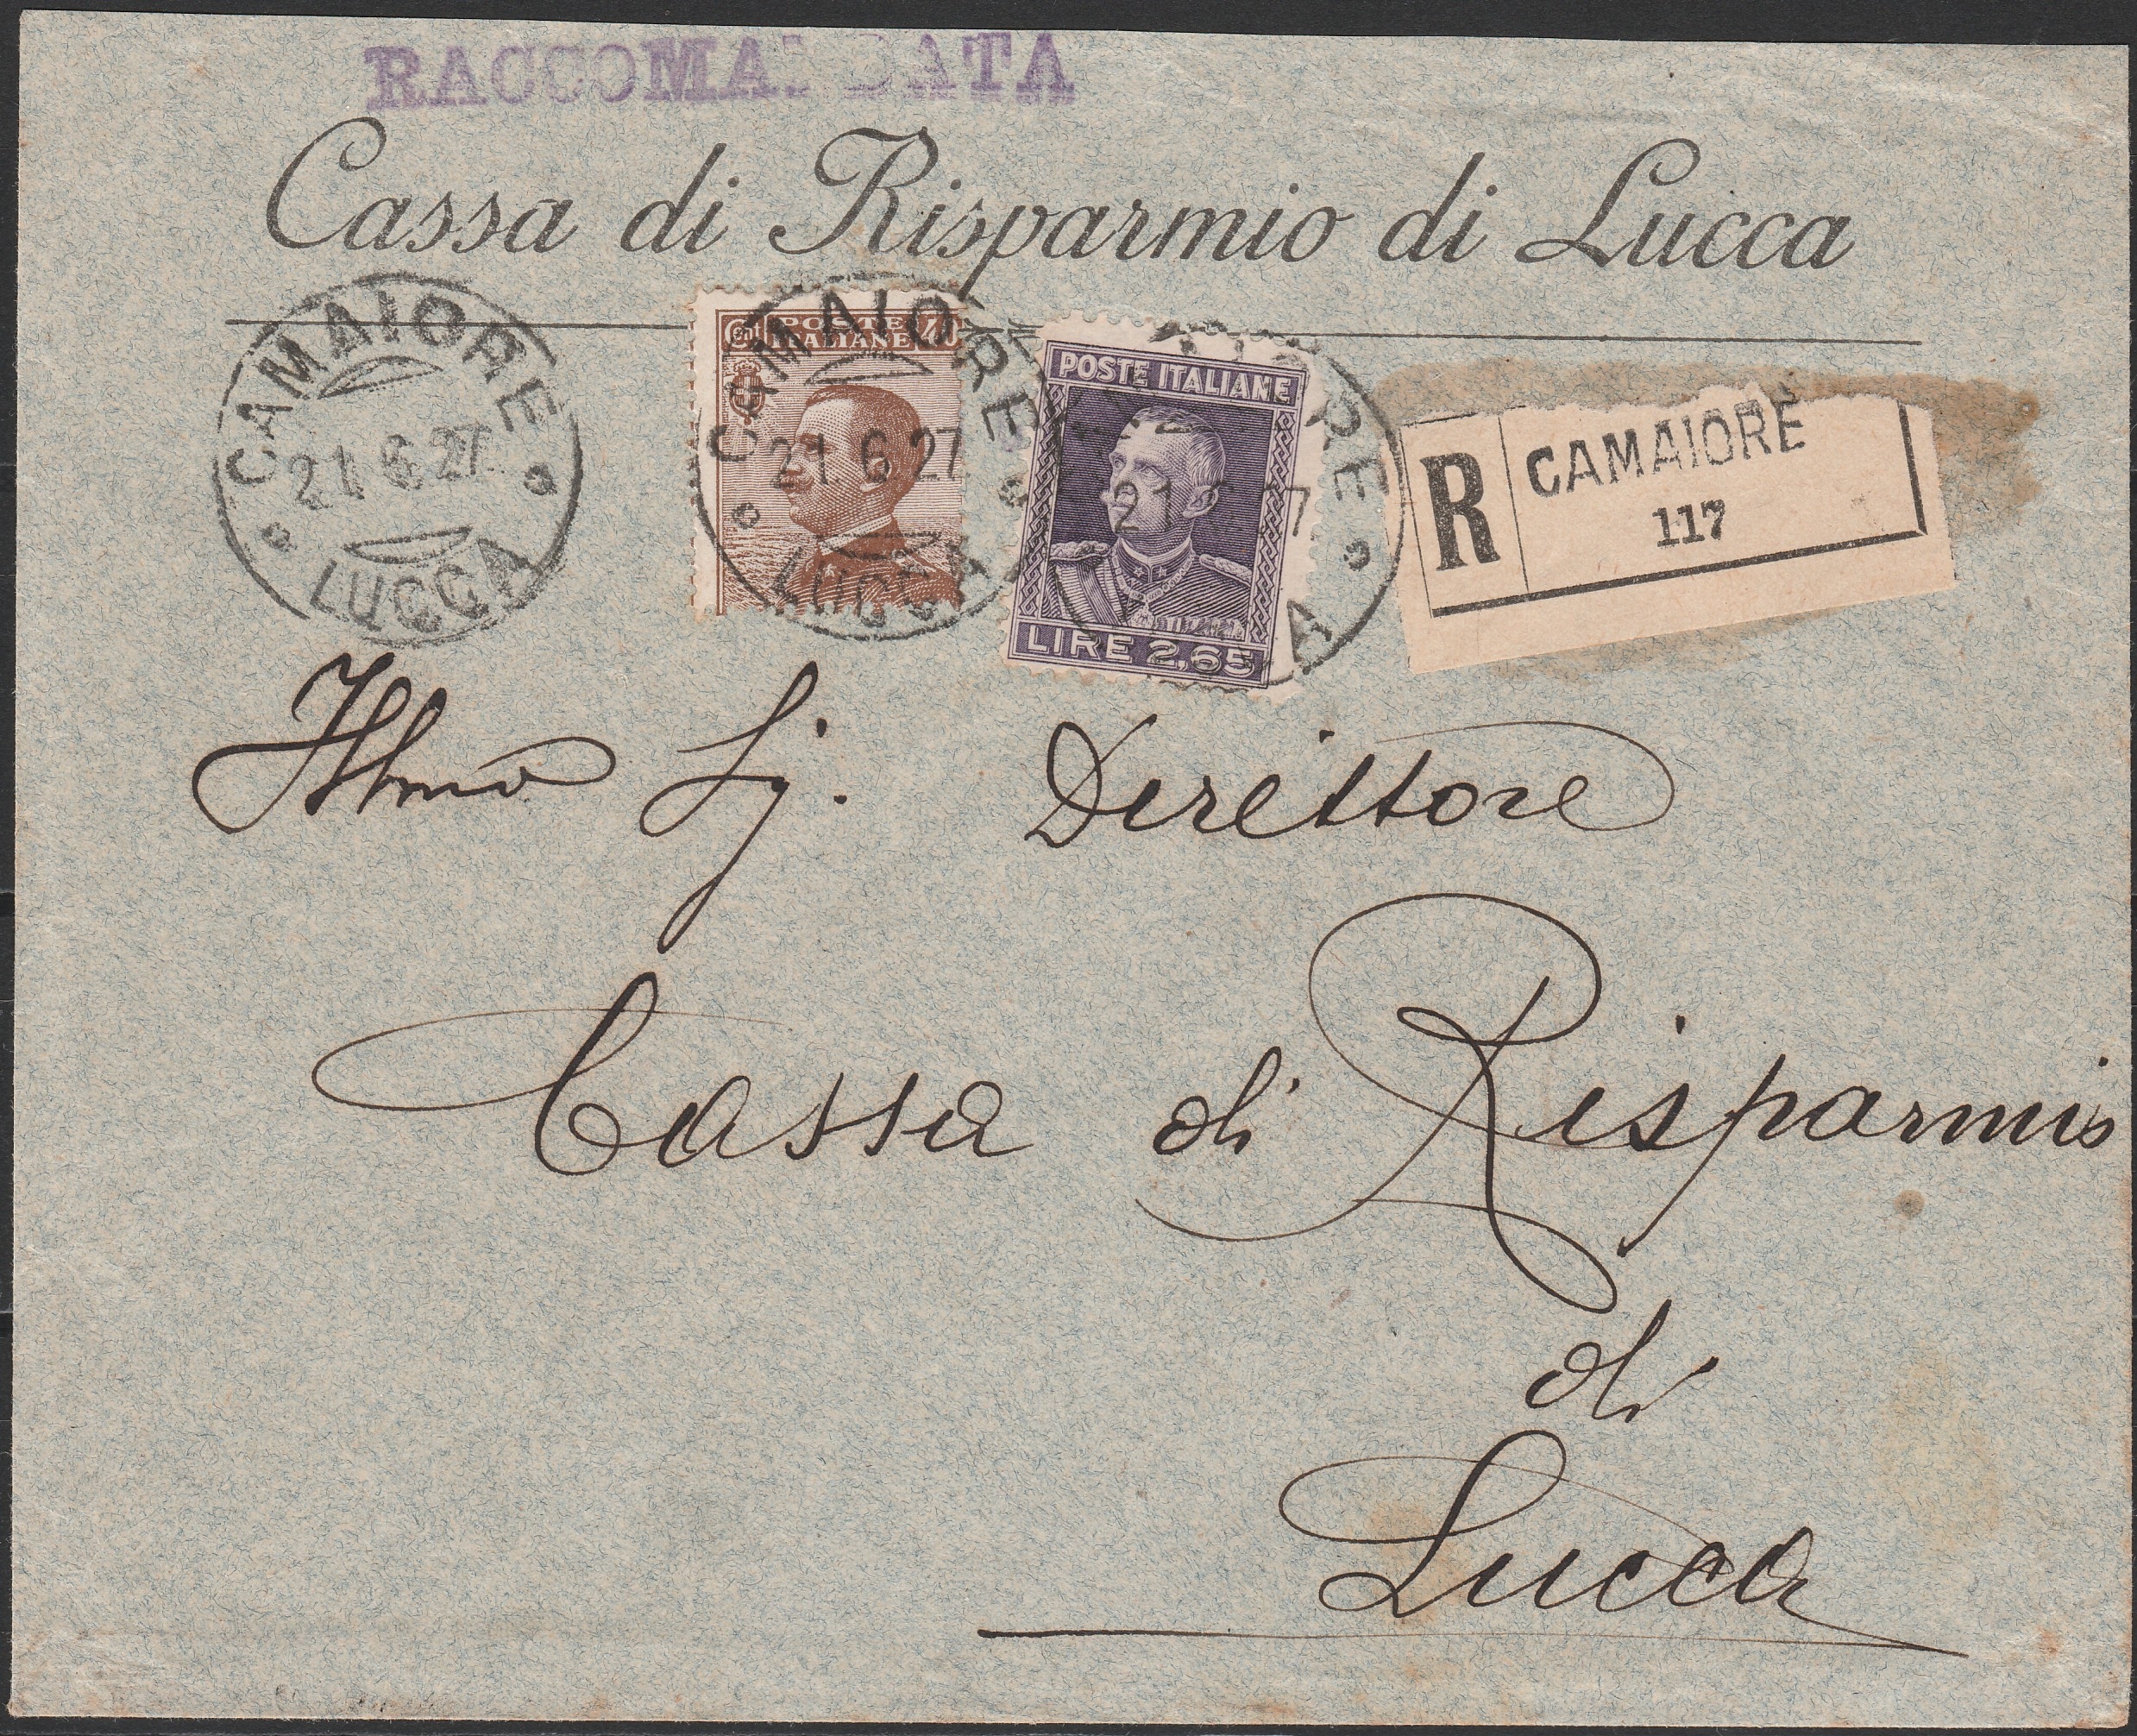 RACCOMANDATA
Cassa di Risparmio di Lucca
CAMAIORE
21.6.27
LUCCA
Cent POSTE ITALIANE 40
CAMAIORE
21 6 27
LUCCA
POSTE ITALIANE
LIRE 2,65
R
CAMAIORE
117
Illmo Sig.
Direttore
Cassa di Risparmio
di
Lucca